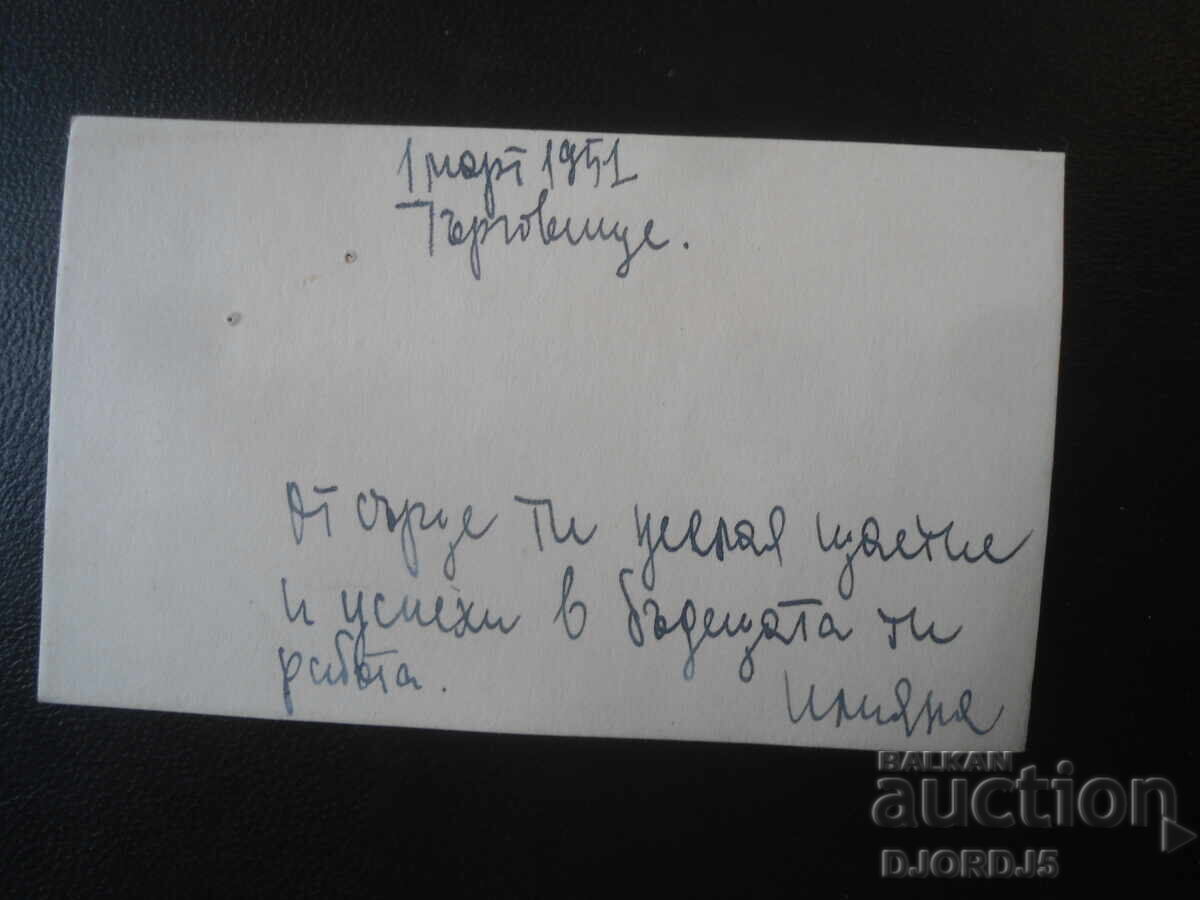 1 март 1951
Търговище.
От сърце ти желая щастие
и успехи в бъдещата ти
работа.
Илияна
BALKAN
auction
DJORDJ5